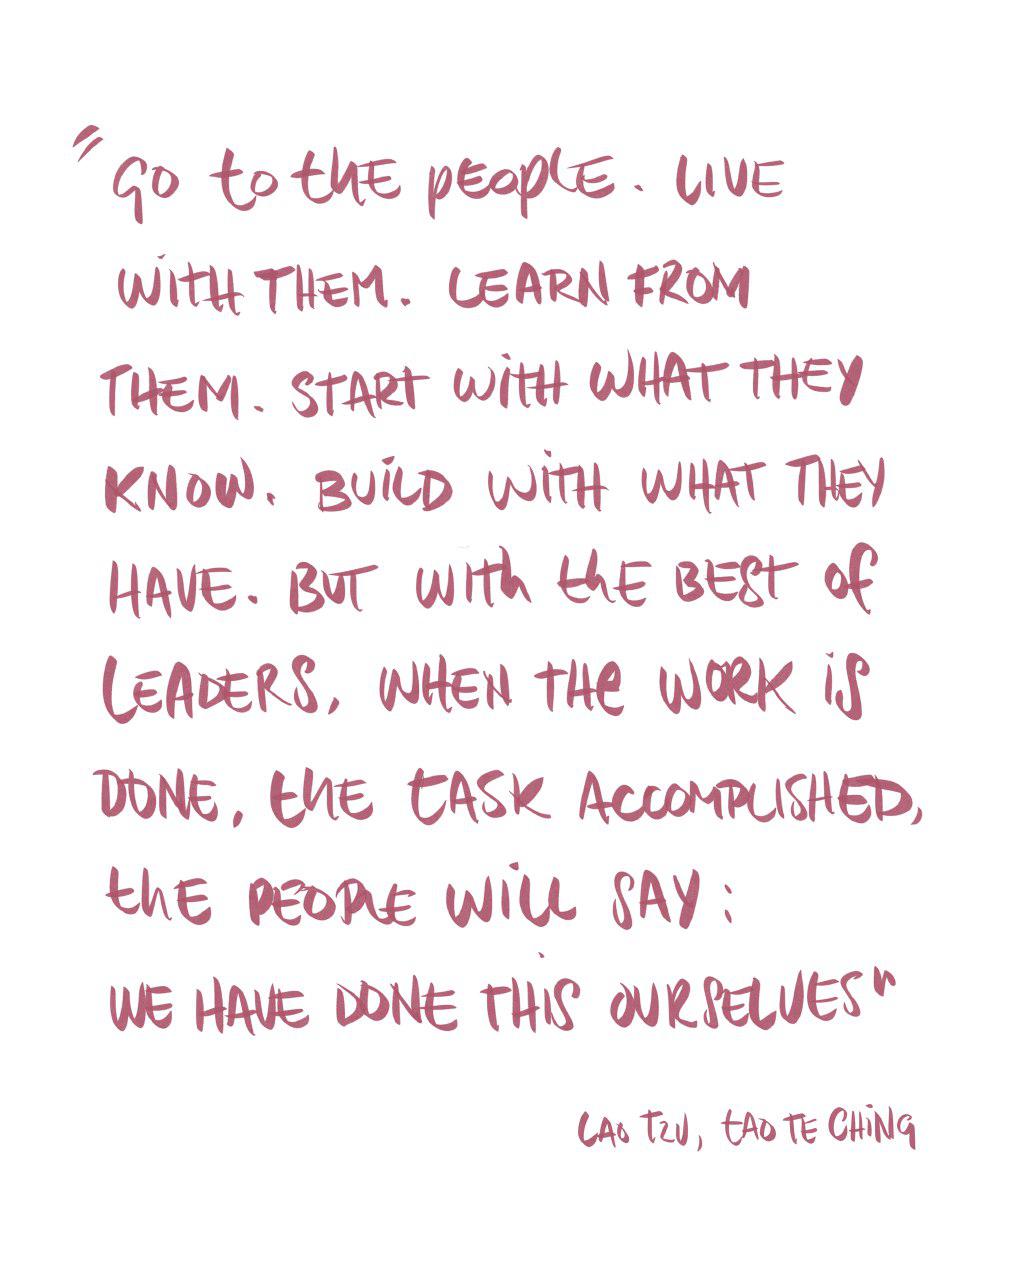 "Go to the people. Live
with them. Learn from
them. Start with what they
know. Build with what they
have. But with the best of
leaders, when the work is
done, the task accomplished,
the people will say:
we have done this ourselves"
Lao Tzu, Tao Te Ching